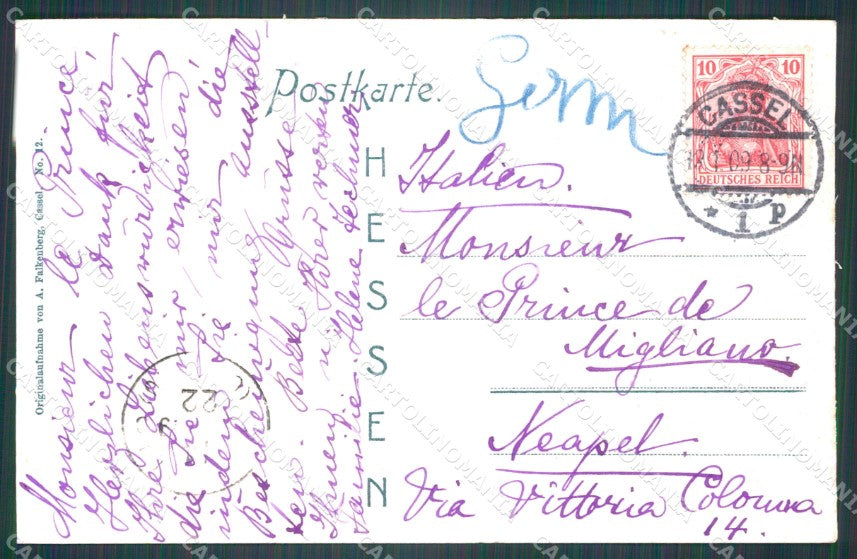 Postkarte.
Germ
10 10
DEUTSCHES REICH
CASSEL
09 8-9N
* 1 P
HESSEN
Italien.
Monsieur
le Prince de
Migliano.
Neapel.
Via Vittoria Colonna
14.
Originalaufnahme von A. Falkenberg, Cassel. No. 12.
Monsieur le Prince!
Herzlichen Dank für
Ihre Liebenswürdigkeit
die Sie mir erwiesen,
indem Sie mir die
Bescheinigung ausstell-
ten. Beste Grüsse
Ihnen u. Ihrer werten
Familie Helene
22
CARTOLINOMANIA